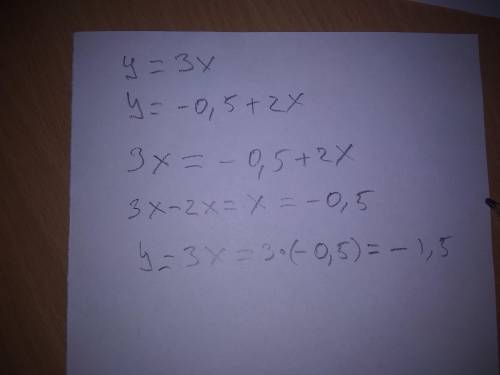 y = 3x
y = -0,5 + 2x
3x = -0,5 + 2x
3x - 2x = x = -0,5
y = 3x = 3·(-0,5) = -1,5